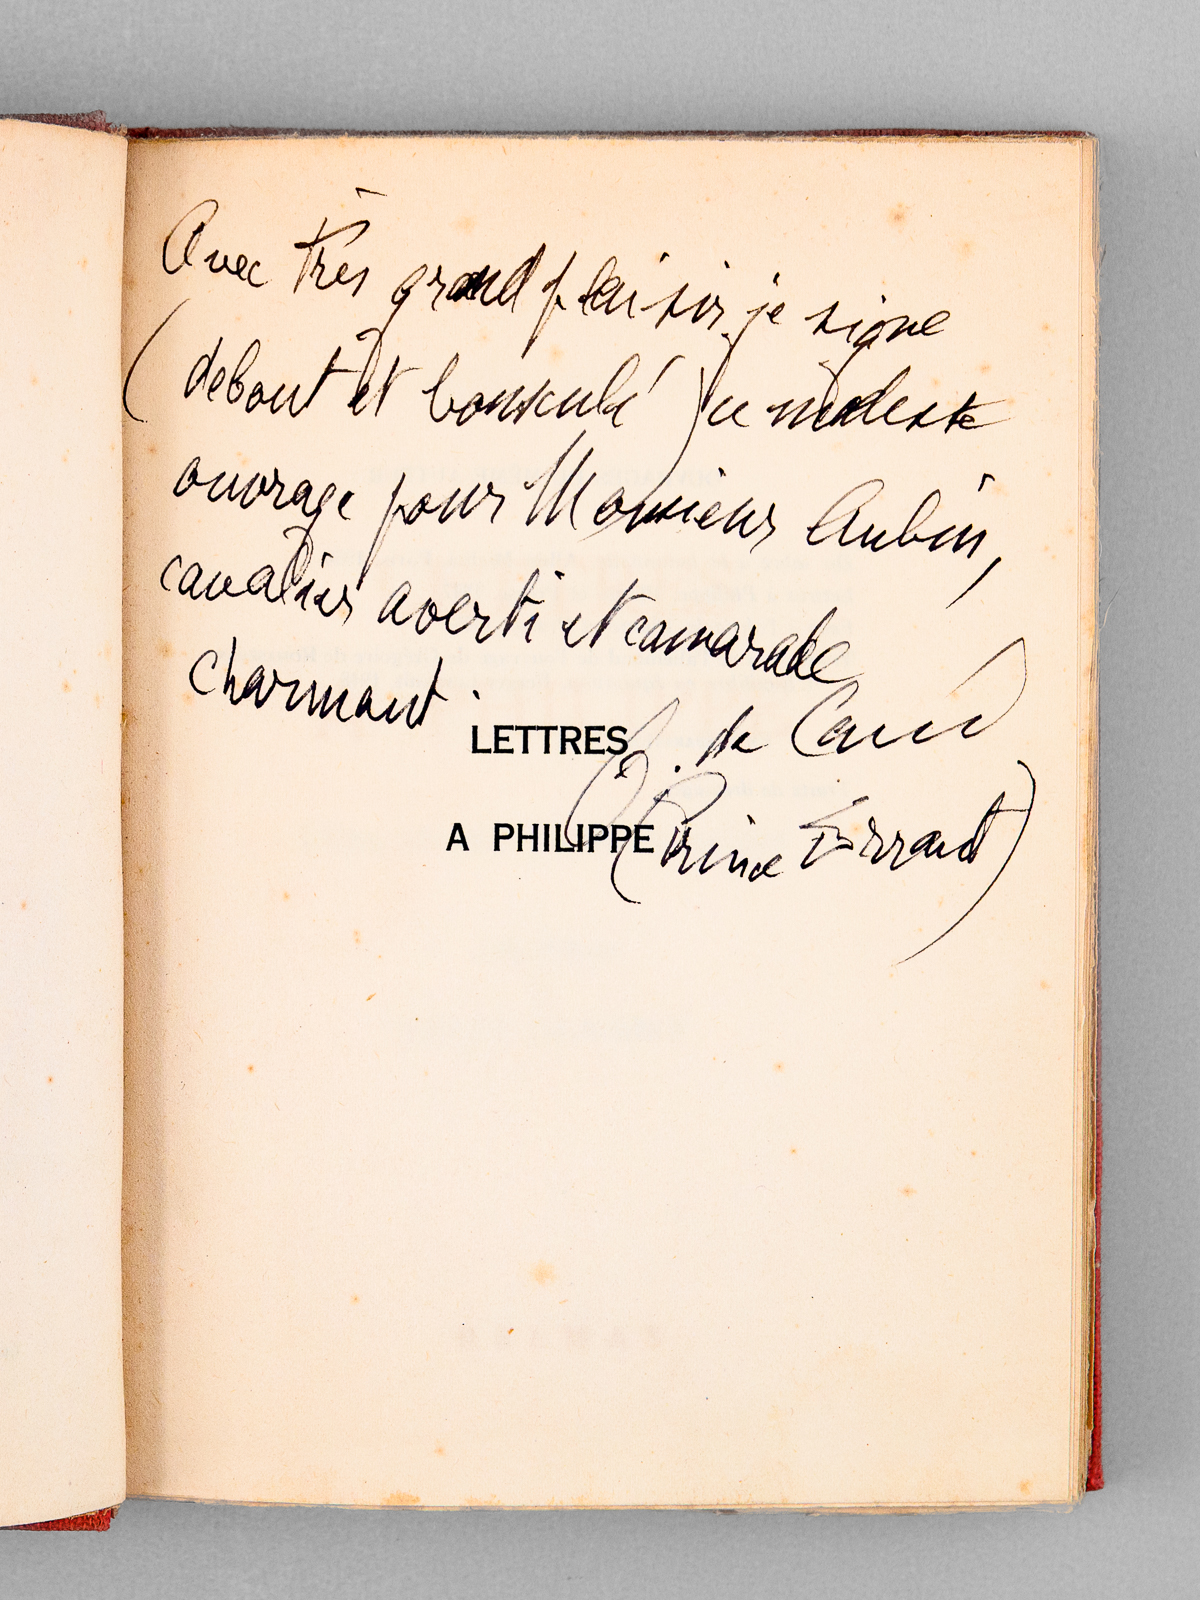 Avec très grand plaisir je signe
(debout et bousculé) ce modeste
ouvrage pour Monsieur Aubin,
cavalier averti et camarade
charmant.
LETTRES
de
A PHILIPPE
(Prince Errant)